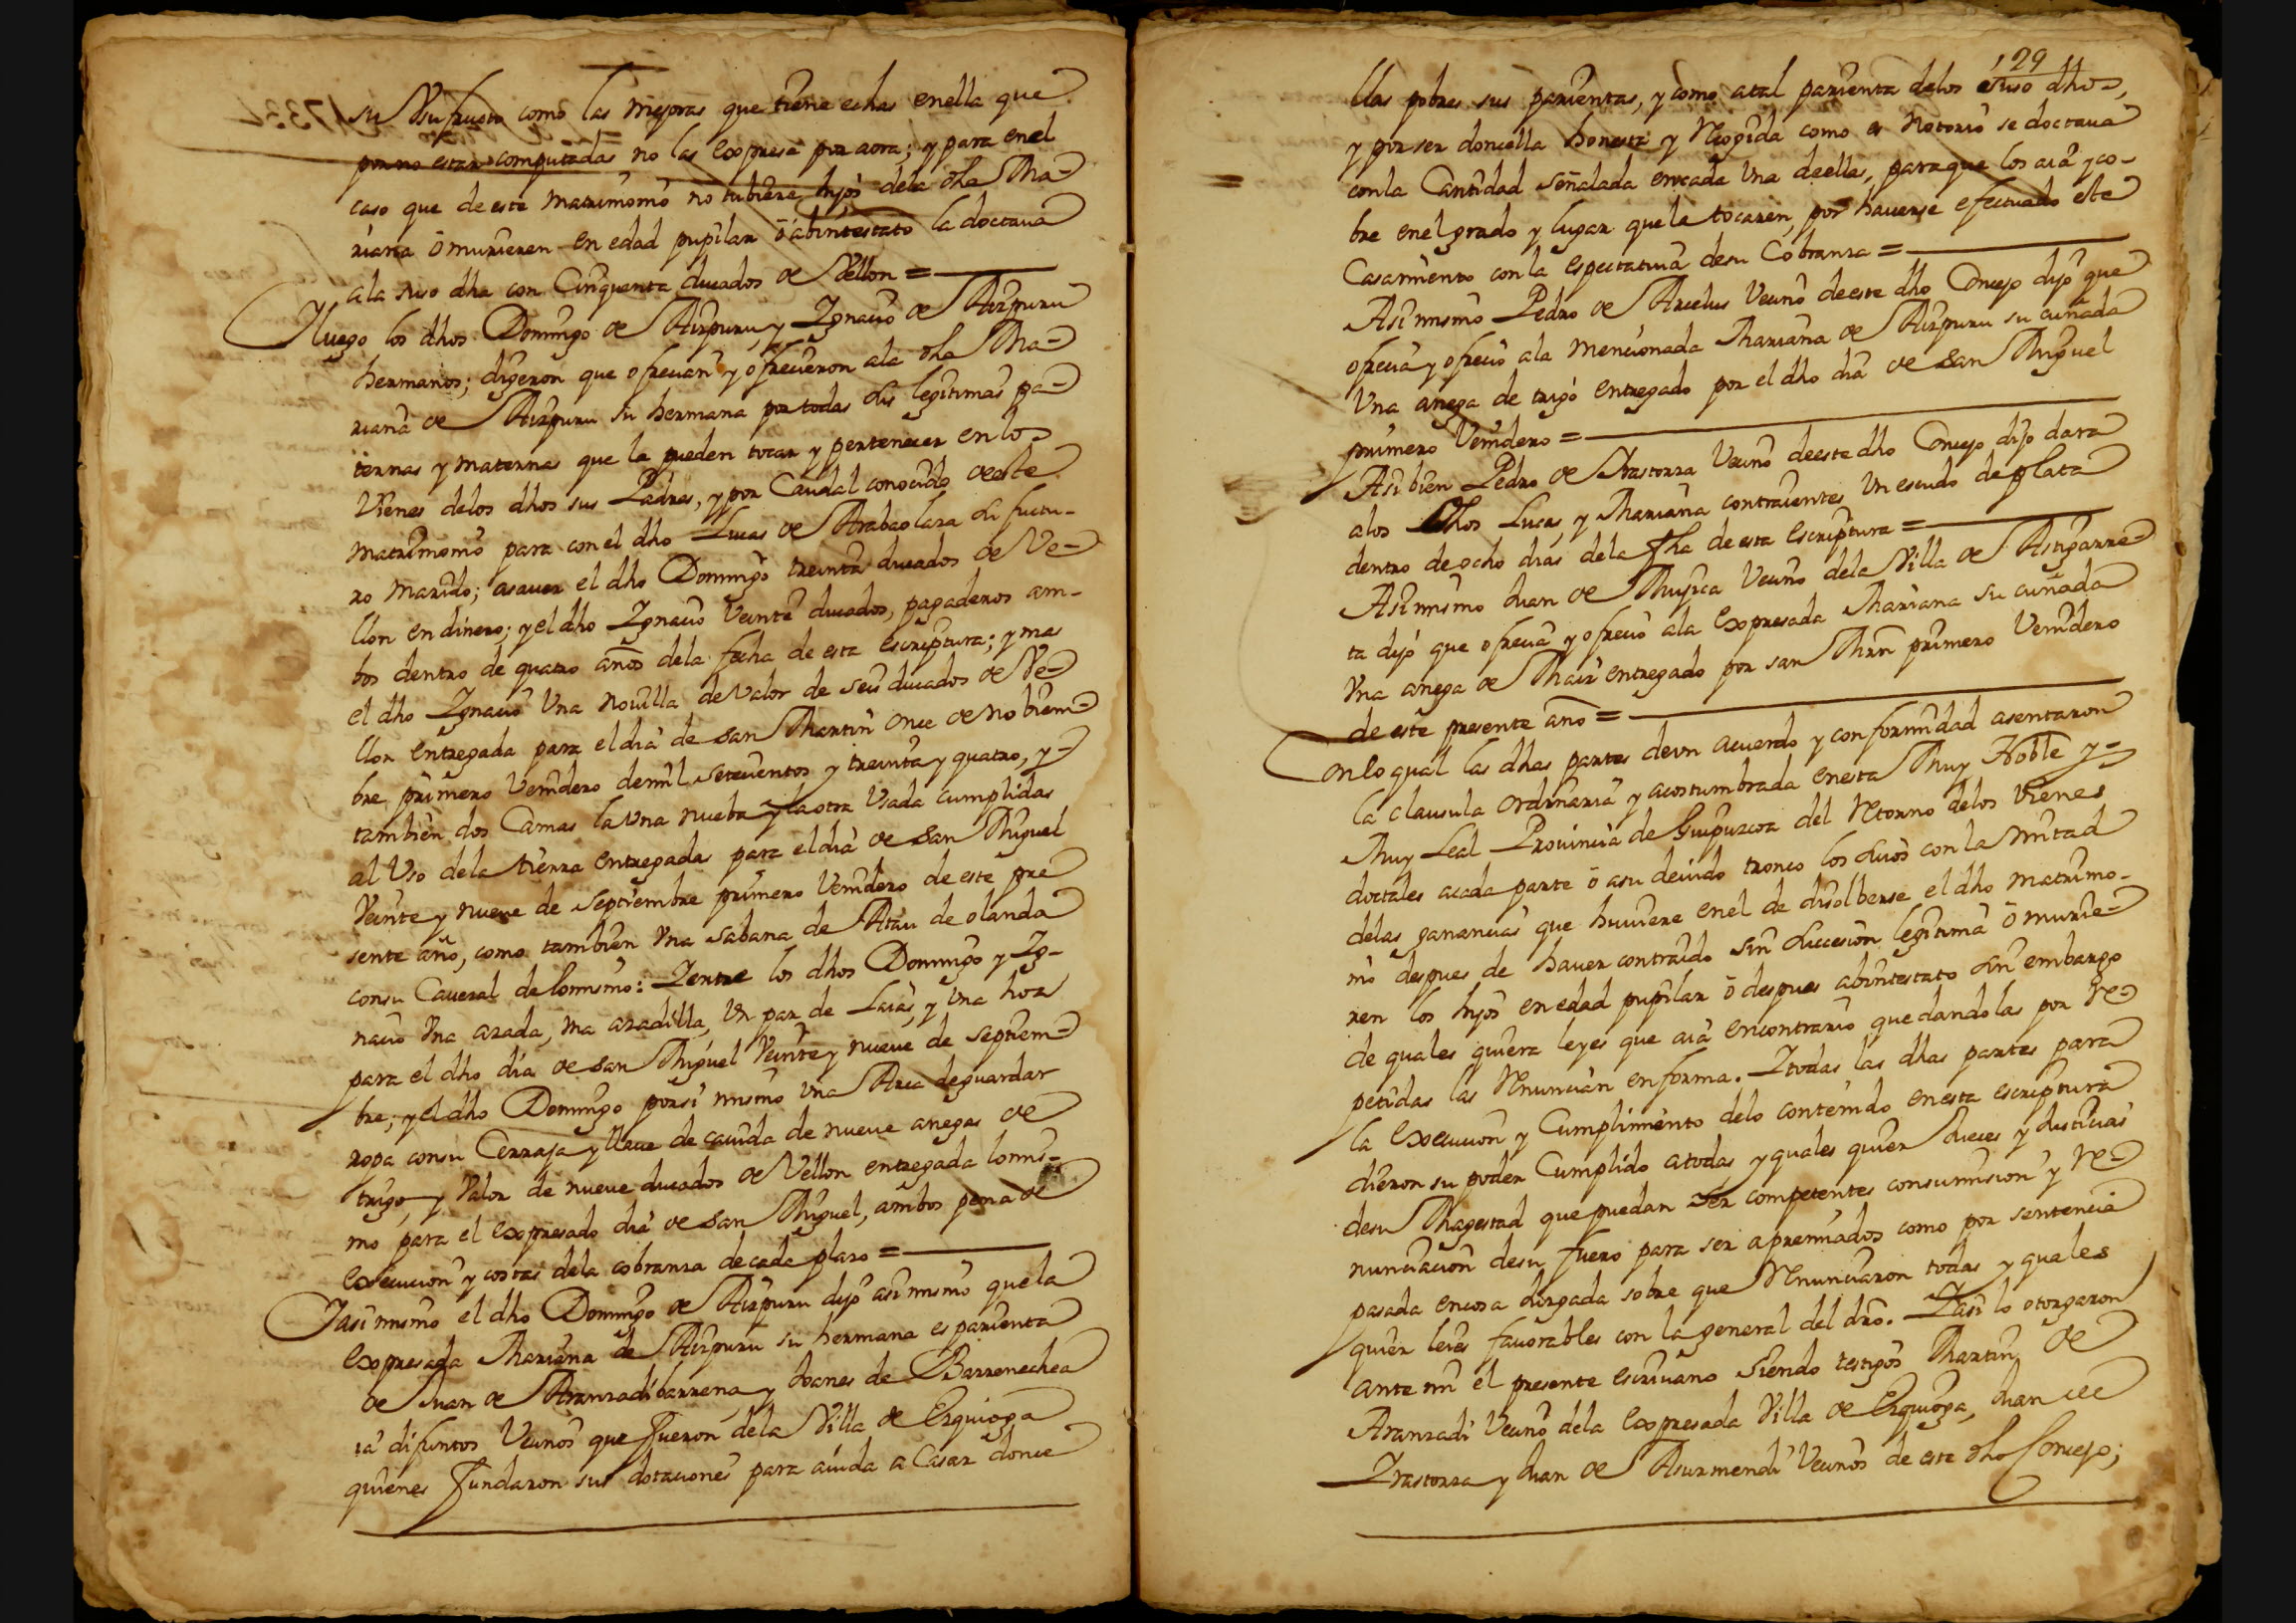 su Vsufructo como las mejoras que tiene echas enella que
por no estar computadas no las expresa por aora; y para enel
caso que de este matrimonio no tubiere hijos dela dha Ma-
riana ō murieren en edad pupilar ō abintestato la doctaua
ala suso dha con Cinquenta ducados de Vellon =
Yluego los dhos Domingo de Aizpuru, y Ignacio de Aizpuru
hermanos; digeron que ofrecian y ofrecieron ala dha Ma-
riana de Aizpuru su hermana por todas sus legitimas pa-
ternas y maternas que la pueden tocar y pertenecer en los
Vienes delos dhos sus Padres, y por Caudal conocido de este
matrimonio para con el dho Lucas de Arabaolaza su futu-
ro marido; asauer el dho Domingo treinta ducados de Ve-
llon en dinero; y el dho Ignacio Veinte ducados, pagaderos am-
bos dentro de quatro años dela fecha de esta escriptura; y mas
el dho Ignacio Vna nouilla de Valor de seis ducados de Ve-
llon entregada para el dia de san Martin once de nobiem-
bre primero Venidero demil setecientos y treinta y quatro, y
tambien dos Camas la Vna nueba y la otra Vsada cumplidas
al Vso dela tierra entregadas para el dia de san Miguel
Veinte y nueue de septiembre primero Venidero de este pre
sente año, como tambien Vna sabana de Atau de olanda
consu Caueral de lo mismo: Yentre los dhos Domingo y Ig-
nacio Vna azada, vna azadilla, Vn par de Laias, y Vna hoz
para el dho dia de san Miguel Veinte y nueue de septiem-
bre; y el dho Domingo por si mismo Vna Arca deguardar
ropa consu Cerraja y llaue de cauida de nueue anegas de
trigo, y Valor de nueue ducados de Vellon entregada lo mis-
mo para el expresado dia de san Miguel, ambos pena de
execucion y costas dela cobranza decada plazo =
Yasi mismo el dho Domingo de Aizpuru dijo asi mismo que la
expresada Mariana de Aizpuru su hermana es parienta
de Juan de Aranzadibarrena, y Joanes de Barrenechea
ia difuntos Vecinos que fueron dela Villa de Ezquioga
quienes fundaron sus dotaciones para aiuda a Casar donce
129
llas pobres sus parientas, y como atal parienta delos ésuso dhos,
y por ser doncella honesta y Recogida como es Notorio se doctaua
con la Cantidad señalada encada Vna deellas, paraque los aia y co-
bre enel grado y lugar que le tocaren, por hauerse efectuado este
Casamiento con la espectatiua desu Cobranza =
Asi mismo Pedro de Arcelus Vecino deeste dho Concejo dijo que
ofrecia y ofrecio ala mencionada Mariana de Aizpuru su cuñada
Vna anega de trigo entregado por el dho dia de san Miguel
primero Venidero =
Asi bien Pedro de Irastorza Vecino deeste dho Concejo dijo dara
alos dhos Lucas, y Mariana contraientes Vn escudo de plata
dentro de ocho dias dela fha de esta escriptura =
Asi mismo Juan de Mugica Vecino dela Villa de Astigarre-
ta dijo que ofrecia y ofrecio ala expresada Mariana su cuñada
Vna anega de Maiz entregado por san Mrn primero Venidero
de este presente año =
Conlo qual las dhas partes devn acuerdo y conformidad asentaron
la clausula ordinaria y acostumbrada enesta Muy Noble y-
Muy Leal Prouincia de Guipuzcoa del Retorno delos Vienes
doctales acada parte ō asu deuido tronco los suios con la mitad
delas ganancias que huuiere enel de disolberse el dho matrimo-
nio despues de hauer contraido sin succesion legitima ō murie-
ren los hijos en edad pupilar ō despues abintestato sin embargo
de quales quiera leyes que aia encontrario quedandolas por Re-
petidas las Renuncian enforma. Ytodas las dhas partes para
la execucion y Cumplimiento delo contenido enesta escriptura
dieron su poder Cumplido atodas y quales quier Jueces y Justicias
desu Magestad que puedan ser competentes consumision y Re-
nunciacion desu fuero para ser apremiados como por sentencia
pasada encosa Juzgada sobre que Renunciaron todas y quales
quier leies fauorables con la general del drō. Yasi lo otorgaron
ante mi el presente escriuano siendo testigos Martin de
Aranzadi Vecino dela expresada Villa de Ezquioga, Juan de
Irastorza y Juan de Asurmendi Vecinos de este dho Concejo;